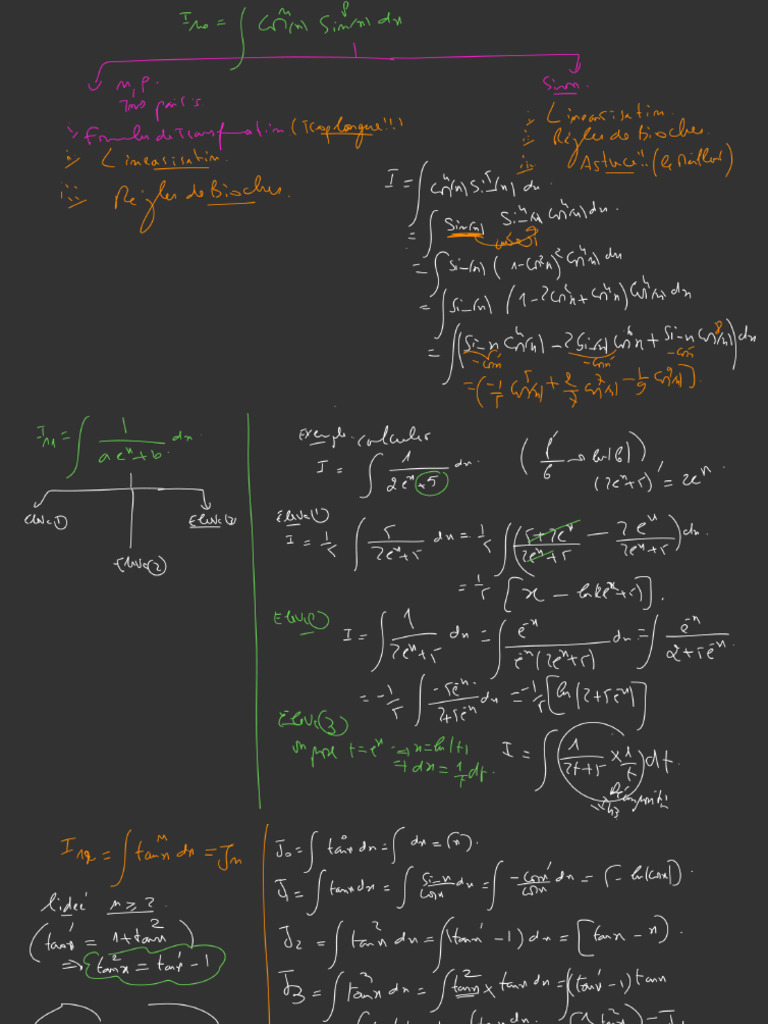 I₁₀ = ∫ cosⁿ(x) sinᵖ(x) dx
n, p.
Tous pairs
Sinon.
i) Formules de Transformation (Trop longue!!)
ii) Linéarisation.
iii) Règles de Bioches.
i) Linéarisation.
ii) Règles de Bioches.
iii) Astuce!! (
I = ∫ cos⁴(x) sin⁵(x) dx
= ∫ sin(x) sin⁴(x) cos⁴(x) dx
= ∫ sin(x) (1-cos²x)² cos⁴x dx
= ∫ sin(x) (1-2cos²x + cos⁴x) cos⁴(x) dx
= ∫ (sin x cos⁴(x) - 2 sin(x) cos⁶x + sin x cos⁸(x)) dx
-cos' -cos' -cos'
= (-1/5 cos⁵(x) + 2/7 cos⁷(x) - 1/9 cos⁹(x)].
I₁₁ = ∫ 1/(a eˣ + b) dx
Elève(1)
Elève(2)
Elève(3)
Exemple: calculer
I = ∫ 1/(2eˣ+5) dx (f'/f → ln|f|)
(2eˣ+5)' = 2eˣ
Elève(1)
I = 1/5 ∫ 5/(2eˣ+5) dx = 1/5 ∫ ((5+2eˣ)/(2eˣ+5) - 2eˣ/(2eˣ+5)) dx
= 1/5 [x - ln(2eˣ+5)].
Elève(2)
I = ∫ 1/(2eˣ+5) dx = ∫ e⁻ˣ/(e⁻ˣ(2eˣ+5)) dx = ∫ e⁻ˣ/(2+5e⁻ˣ)
= -1/5 ∫ -5e⁻ˣ/(2+5e⁻ˣ) dx = -1/5 [ln(2+5e⁻ˣ)]
Elève(3)
on pose t = eˣ → x = ln(t)
→ dx = 1/t dt.
I = ∫ (1/(2t+5) × 1/t) dt.
I₁₂ = ∫ tanⁿx dx = Jₙ
l'idée n ≥ 2
(tan'x = 1+tan²x)
⇒ tan²x = tan'x - 1
J₀ = ∫ tan⁰x dx = ∫ dx = [x].
J₁ = ∫ tan x dx = ∫ sin x/cos x dx = ∫ -cos'x/cos x dx = [-ln|cos x|].
J₂ = ∫ tan²x dx = ∫ (tan'x - 1) dx = [tan x - x].
J₃ = ∫ tan³x dx = ∫ tan²x × tan x dx = ∫ (tan'x - 1) tan x